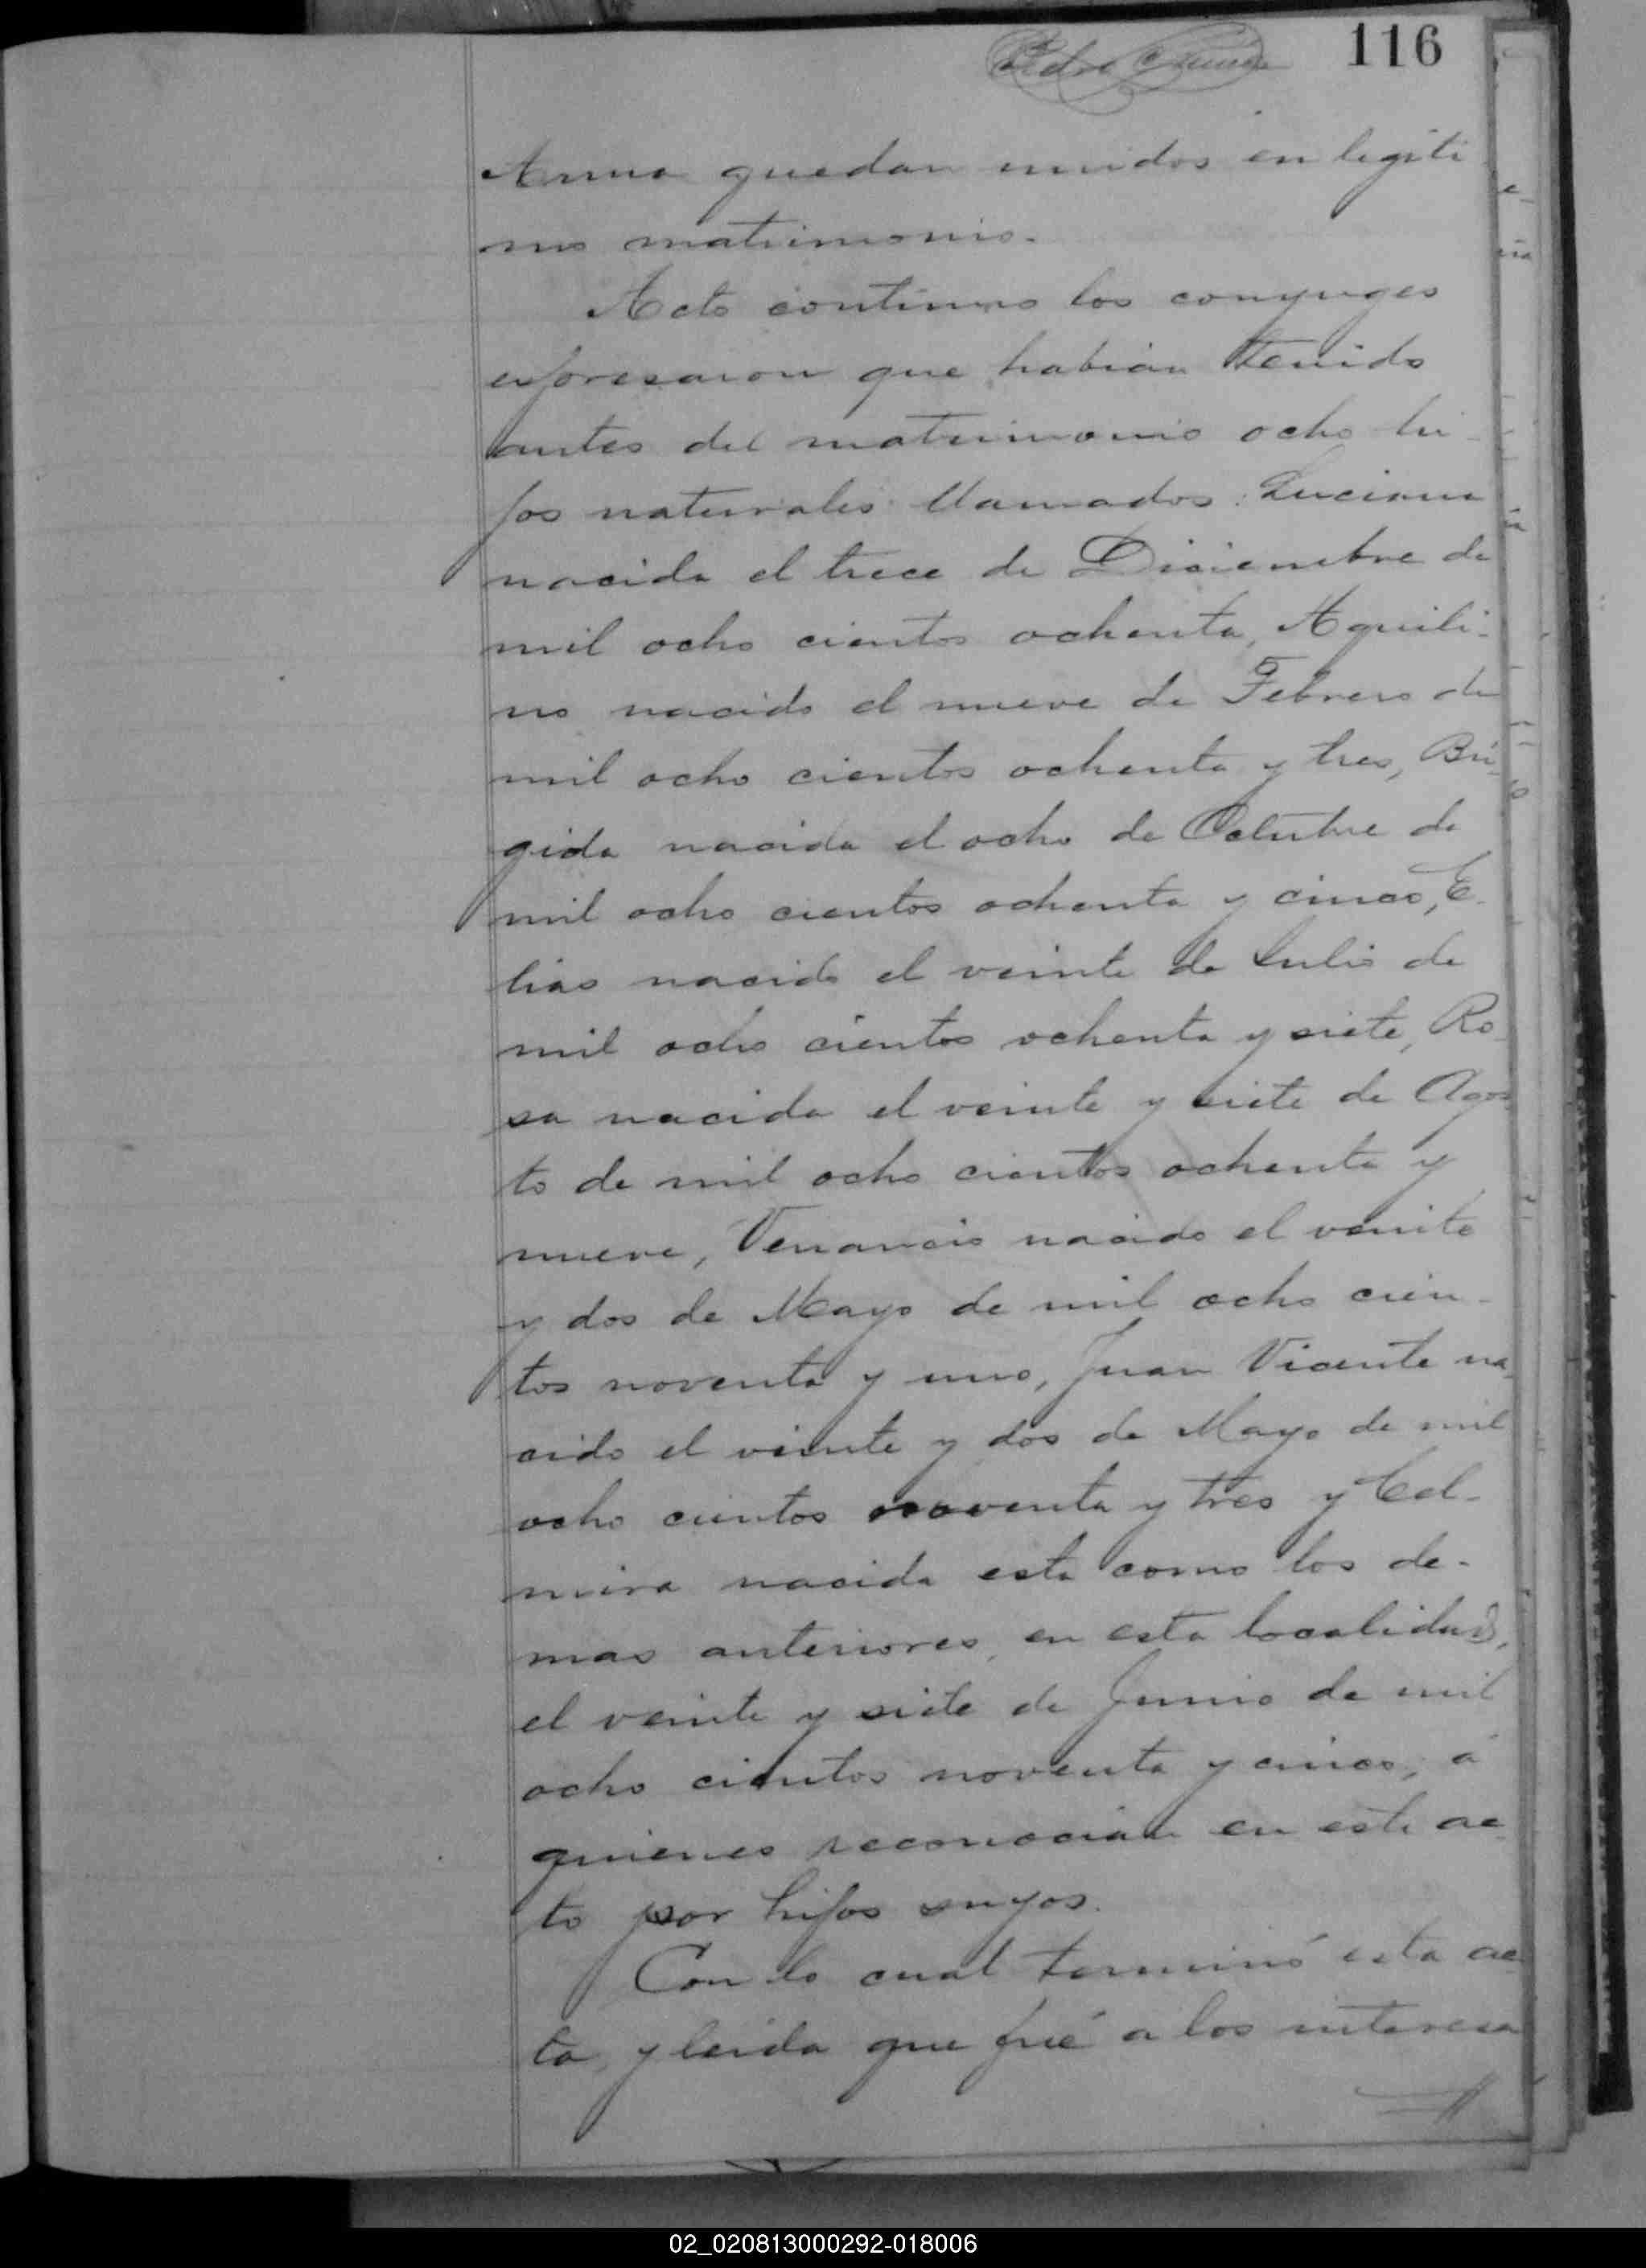 116
Anna quedan unidos en legiti
mo matrimonio.
Acto continuo los conyuges
espresaron que habian tenido
antes del matrimonio ocho hi-
jos naturales llamados: Luciana
nacida el trece de Diciembre de
mil ocho cientos ochenta, Aquili-
no nacido el nueve de Febrero de
mil ocho cientos ochenta y tres, Brí-
gida nacida el ocho de Octubre de
mil ocho cientos ochenta y cinco, E-
lias nacido el veinte de Julio de
mil ocho cientos ochenta y siete, Ro-
sa nacida el veinte y siete de Agos
to de mil ocho cientos ochenta y
nueve, Venancio nacido el veinte
y dos de Mayo de mil ocho cien-
tos noventa y uno, Juan Vicente na-
cido el veinte y dos de Mayo de mil
ocho cientos noventa y tres y Cel-
mira nacida esta como los de-
mas anteriores en esta localidad,
el veinte y siete de Junio de mil
ocho cientos noventa y cinco, á
quienes reconocian en este ac-
to por hijos suyos.
Con lo cual terminó esta ac-
ta y leida que fué a los interesa
02_020813000292-018006